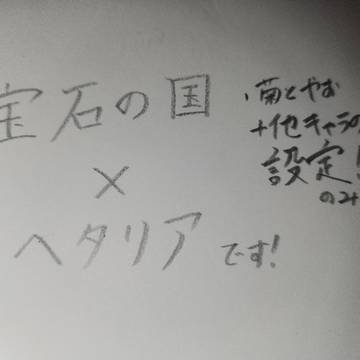 宝石の国
×
ヘタリア です!
・菊とやお
+他キャラの
設定!
のみ